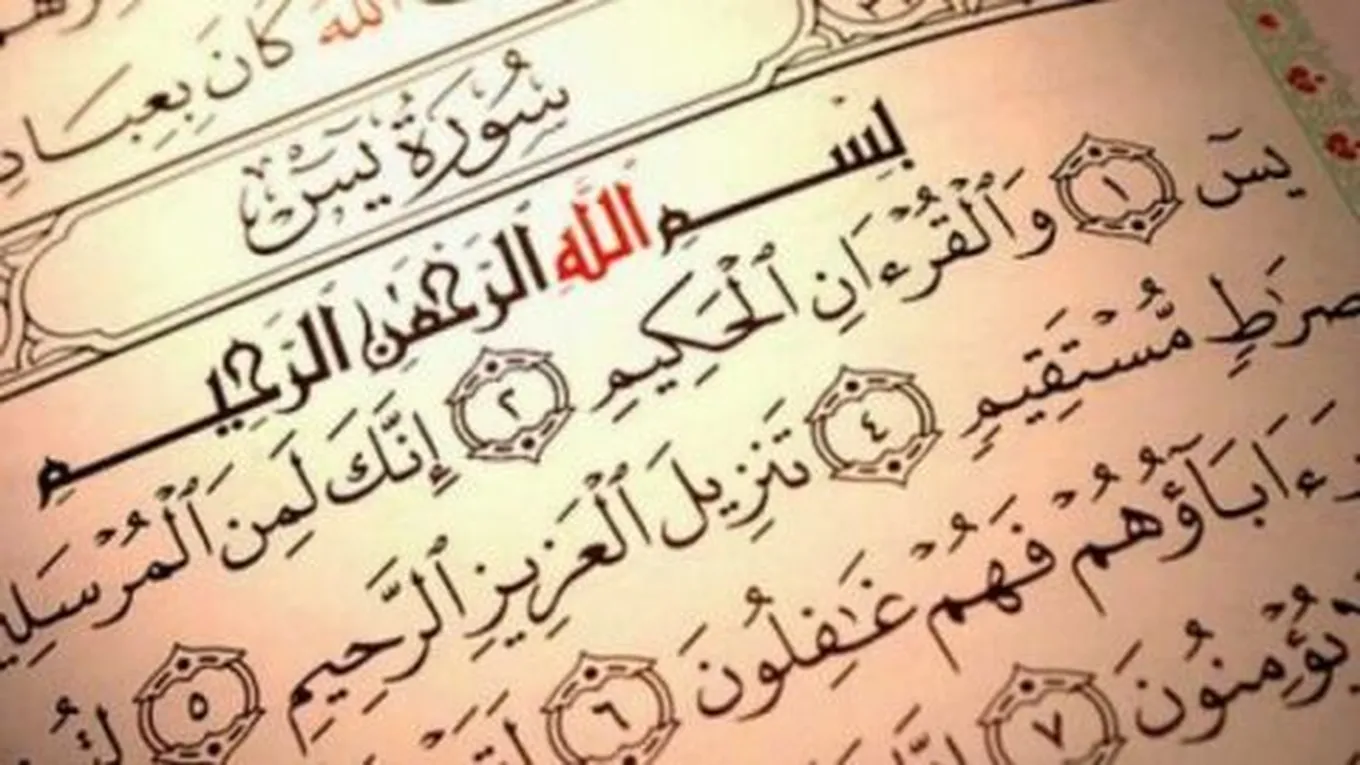 ٱللَّهَ كَانَ بِعِبَادِ
سُورَةُ يسٓ
بِسْمِ اللَّهِ الرَّحْمَٰنِ الرَّحِيمِ
يسٓ ١ وَٱلْقُرْءَانِ ٱلْحَكِيمِ ٢ إِنَّكَ لَمِنَ ٱلْمُرْسَلِي
صِرَٰطٍ مُّسْتَقِيمٍ ٤ تَنزِيلَ ٱلْعَزِيزِ ٱلرَّحِيمِ ٥
ءَابَآؤُهُمْ فَهُمْ غَٰفِلُونَ ٦
يُؤْمِنُونَ ٧